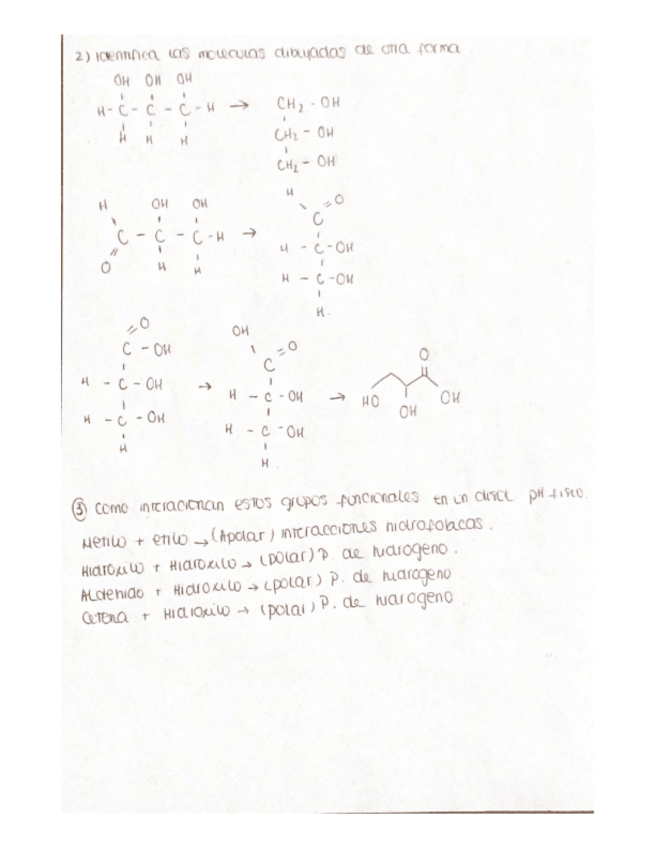 2) Identifica las moleculas dibujadas de otra forma
OH OH OH
H - C - C - C - H → CH2 - OH
H H H
CH2 - OH
CH2 - OH
H OH OH
C - C - C - H →
O H H
H O
C
H - C - OH
H - C - OH
H
O
C - OH
H - C - OH
H - C - OH
H
→
OH
C = O
H - C - OH
H - C - OH
H
→
O
HO OH
OH
③ Como interaccionan estos grupos funcionales en un disol pH fisio.
Metilo + etilo → (Apolar) interacciones hidrofobacas.
Hidroxilo + Hidroxilo → (polar) P. de hidrogeno.
Aldehido + Hidroxilo → (polar) P. de hidrogeno
Cetena + Hidroxilo → (polar) P. de hidrogeno